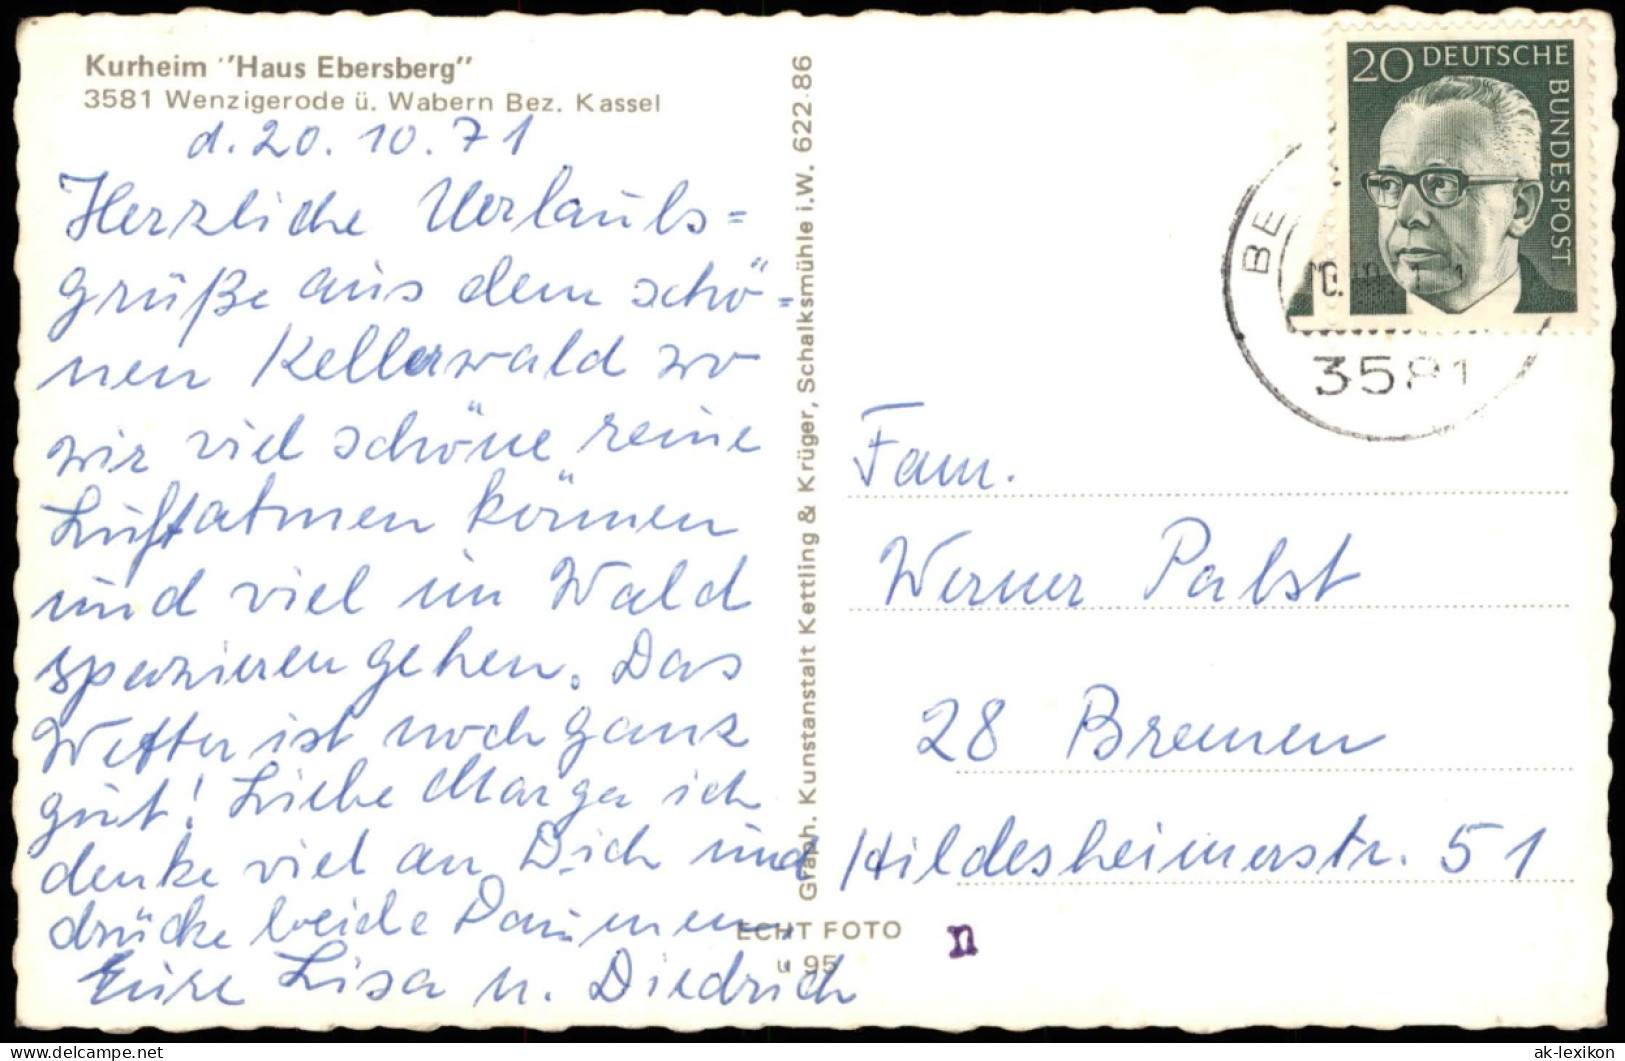 Kurheim "Haus Ebersberg"
3581 Wenzigerode ü. Wabern Bez. Kassel
d. 20. 10. 71
Herzliche Urlaubs=
grüße aus dem schö=
nen Kellerwald wo
wir viel schöne reine
Luft atmen können
und viel im Wald
spazieren gehen. Das
Wetter ist noch ganz
gut! Liebe Marga ich
denke viel an Dich und
drücke beide Daumen,
Eure Lisa u. Diedrich
Graph. Kunstanstalt Kettling & Krüger, Schalksmühle i.W. 622.86
ECHT FOTO
u 95
n
20 DEUTSCHE
BUNDESPOST
BE
3581
Fam.
Werner Pabst
28 Bremen
Hildesheimerstr. 51
© ak-ansichtskarten.de
ak-lexikon